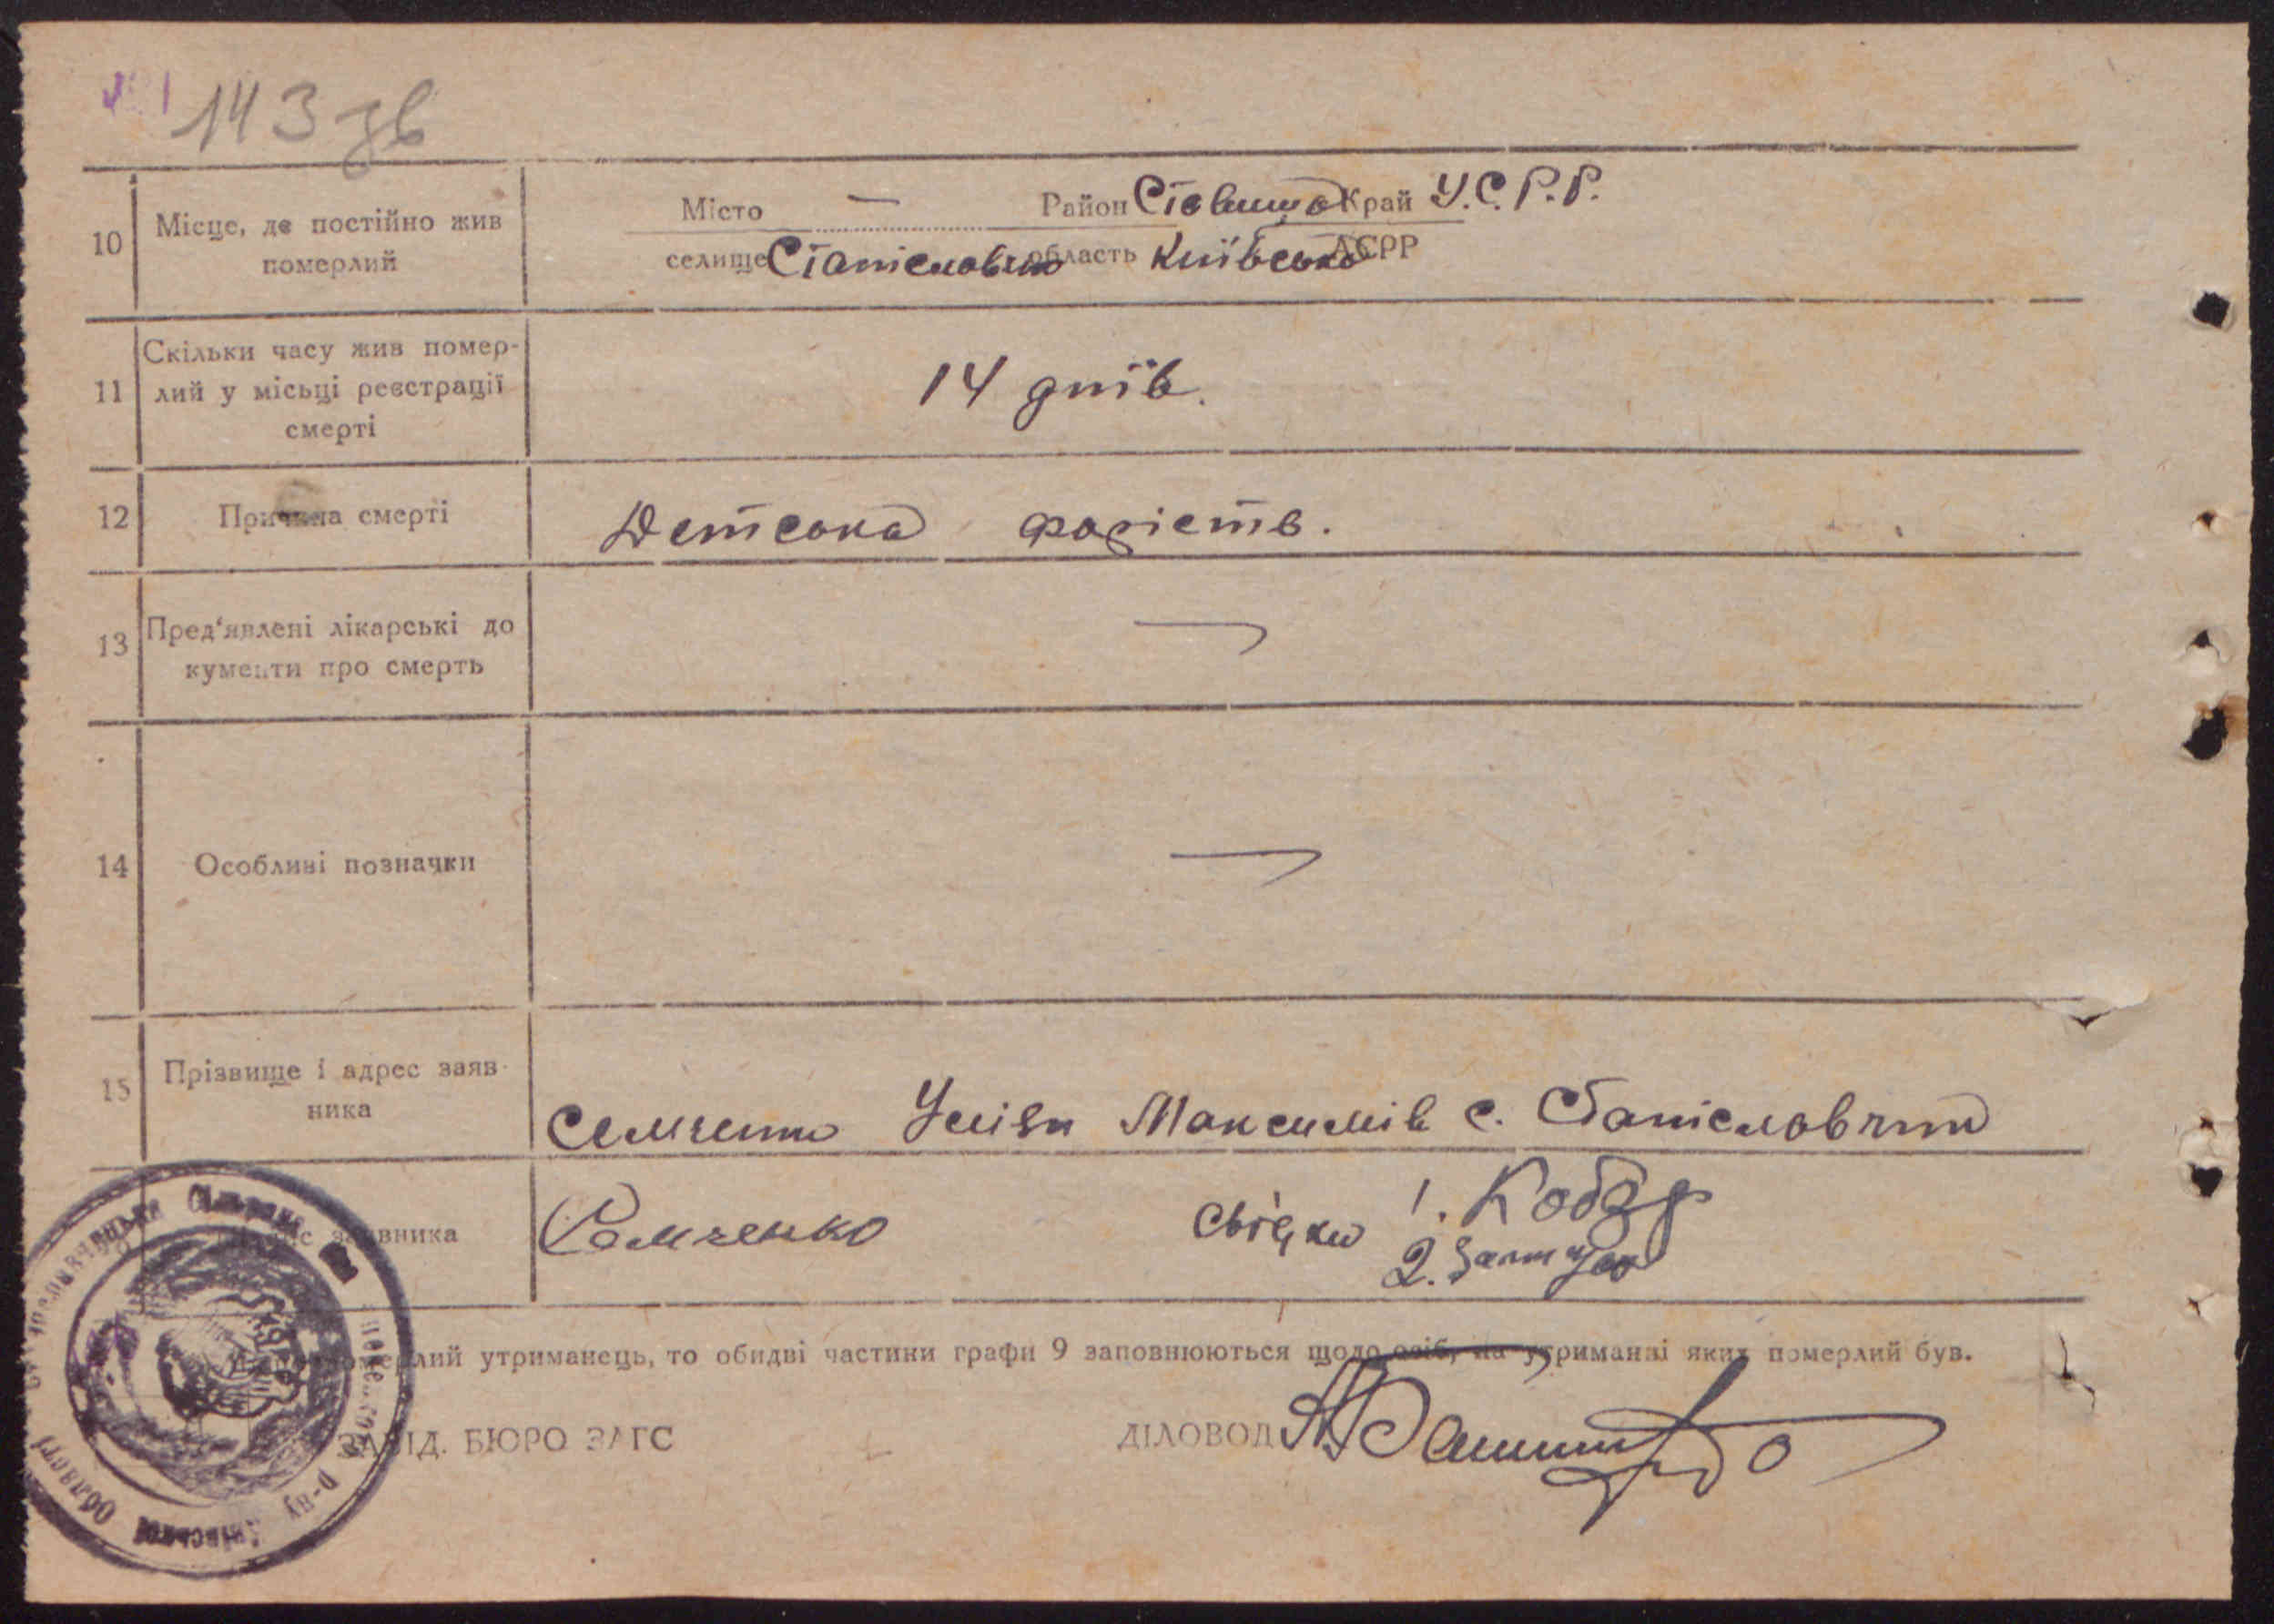 143 зв
10 Місце, де постійно жив померлий
Місто — Район Ставище Край У.С.Р.Р.
селище Станіславчик область Київська АСРР
11 Скільки часу жив помер-
лий у місьці реєстрації
смерті
14 днів.
12 Причина смерті
Детсока
13 Пред'явлені лікарські до
кументи про смерть
—
14 Особливі позначки
—
15 Прізвище і адрес заяв-
ника
Семченко Максимів с. Станіславчик
заявника
Семченко Свідки 1. Кобзар
2.
померлий утриманець, то обидві частини графи 9 заповнюються щодо осіб, на утриманні яких померлий був.
ЗАВІД. БЮРО ЗАГС ДІЛОВОД